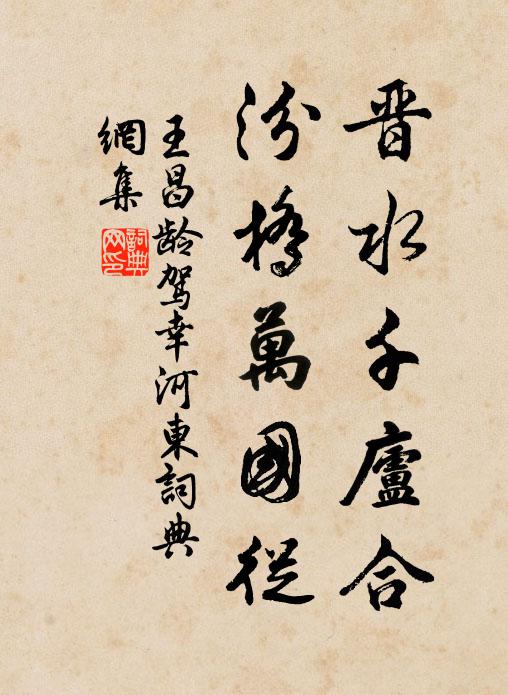 晋水千廬合
汾橋萬國從
王昌龄駕幸河東詞典
網集
詞典
网印